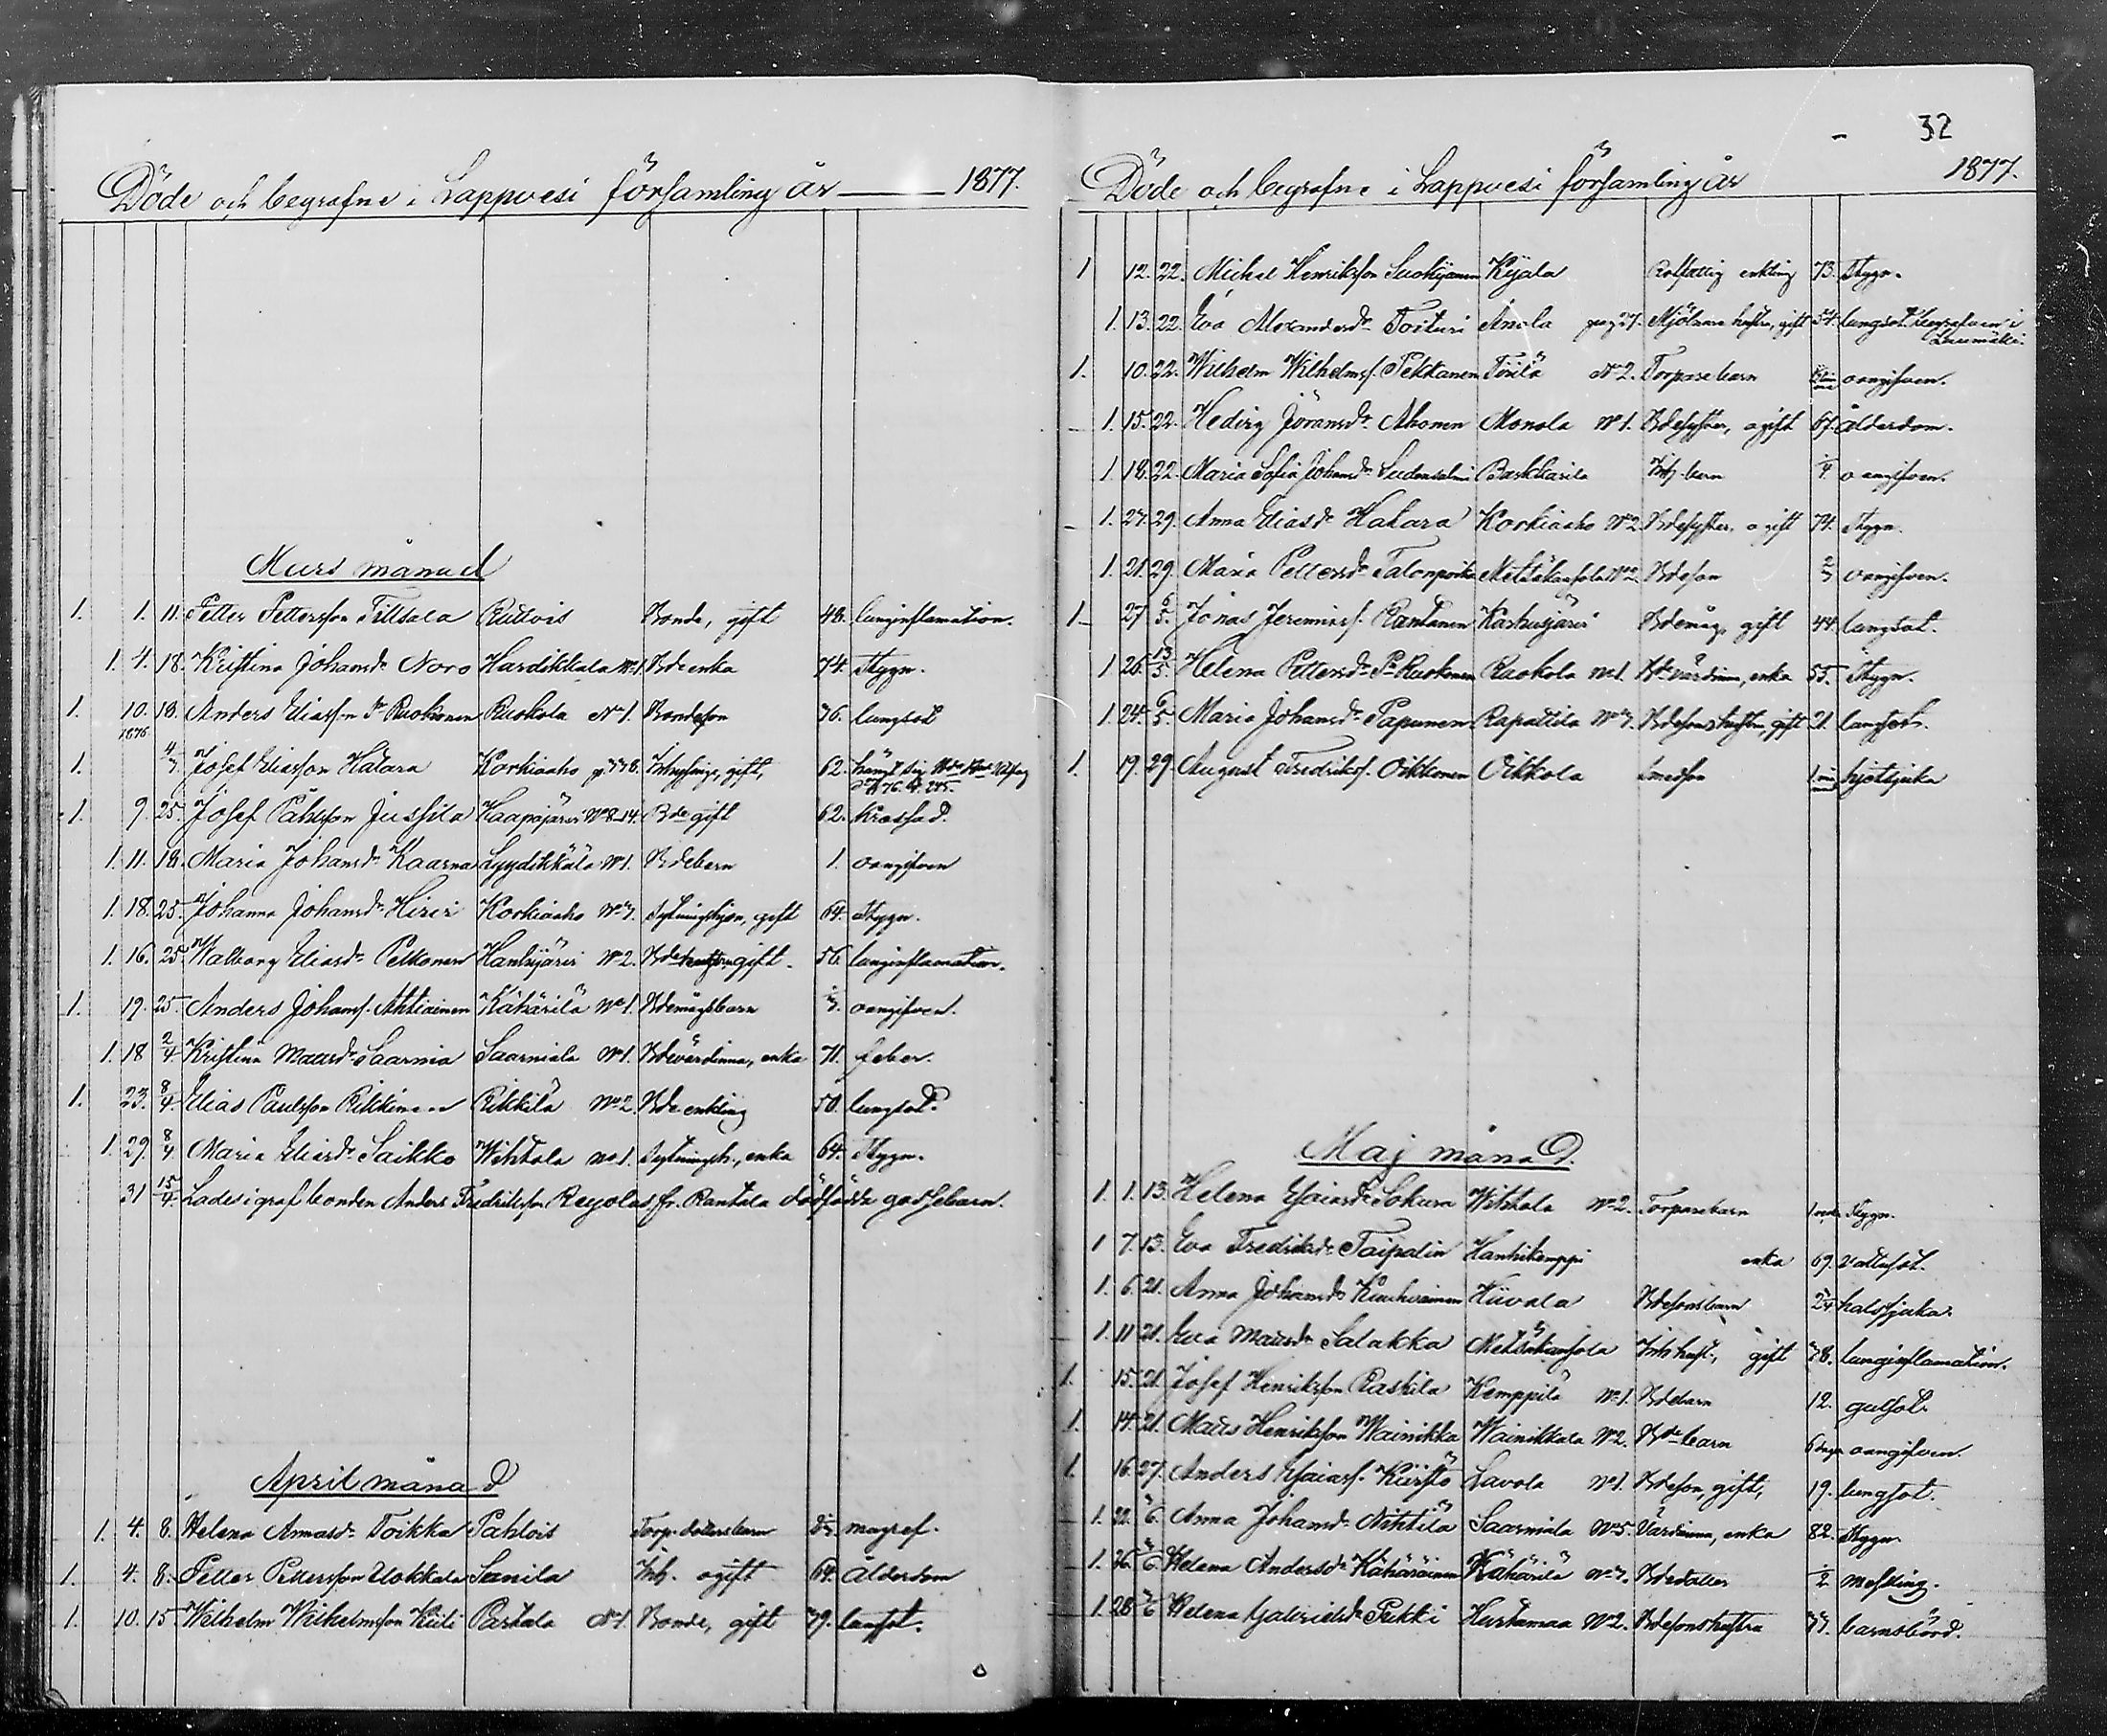 Döde och begrafne i Lappvesi församling år 1877.
Mars månad
1. 1. 11. Petter Pettersson Tillsala Ruttois Bonde, gift 48. lunginflamation.
1. 4. 18. Kristina Johansdr Noro Hardikkala No 1. Bde enka 74. Stygn.
1. 10. 18. Anders Eliasson Pr Ruokonen Ruokola No 1. Bondeson 76. lungsot
1876
1. 4/7. Josef Eliasson Hatara Korkiaaho p. 778. Inhysinge, gift, 62. hängt sig
1. 9. 25. Josef Påhlsson Jussila Haapajärvi No 8-14. Bde gift 62. krossad.
1. 11. 18. Maria Johansdr Kaarna Lyydikkälä No 1. Bdebarn 1. oangifven
1. 18. 25. Johanna Johansdr Hirvi Korkiaaho No 7. Sytningshjon, gift 64. Stygn.
1. 16. 25. Walborg Eliasdr Pelkonen Hanhijärvi No 2. Bdehustru gift. 56. lunginflamation.
1. 19. 25. Anders Johanss. Ahtiainen Kähärilä No 1. Bdemågsbarn oangifven.
1. 18 2/4 Kristina Matsdr Saarnia Saarniala No 1. Bdevärdinna, enka 71. feber.
1. 23. 8/4. Elias Paulsson Rikkinen Rikkilä No 2. Bde enkling 50. lungsot.
1. 29. 8/4 Maria Eliasdr Saikko Wihtola No 1. Sytningsh., enka 64. Stygn.
31 15/4. Lades i graf bonden Anders Fredriksson Reijolas fr. Rantala dödfödda gossebarn.
April månad
1. 4. 8. Helena Annasdr Toikka Pahlois Torp. dottersbarn magref.
1. 4. 8. Petter Pettersson Ukokkola Sanila Inh. ogift 64. Ålderdom
1. 10. 15. Wilhelm Wilhelmsson Kiili Partala No 1. Bonde, gift 39. lungsot.
32
Döde och begrafne i Lappvesi församling år 1877.
1 12. 22. Michel Henriksson Suokijanen Kijala Rotfattig enkling 73. Stygn.
1. 13. 22. Eva Alexandersdr Toituri Anola pag 27. Mjölnare hustru, gift 54. lungsot. begrafven i
Luumäki.
1. 10. 22. Wilhelm Wilhelmss. Pekkanen Törölä No 2. Torparebarn oangifven.
1. 15. 22. Hedvig Jöransdr Ahonen Monola No 1. Bdesyster, ogift 67. ålderdom.
1. 18. 22. Maria Sofia Johansdr Sudensalmi Buskharila Inh. barn oangifven.
1. 27. 29. Anna Eliasdr Hatara Korkiaaho No 2. Bdesyster, ogift 74. Stygn.
1. 21. 29. Maria Pettersdr Talonpoika Metsäkansola No 2. Bdeson oangifven.
1 27 6/5. Jonas Jeremiass. Rantanen Karhusjärvi Bdemåg, gift 44. lungsot.
1. 26. 13/5. Helena Pettersdr Pr Ruokonen Ruokola No 1. Bde värdinna, enka 55. Stygn.
1. 24. 6/5. Maria Johansdr Papunen Rapattila No 7. Bdesonshustru, gift 21. lungsot.
1. 19. 29. August Fredrikss. Oikkonen Oikkola Smedson hjetsjuka
Maj månad.
1. 1. 13. Helena Esaiasdr Sokura Wihtola No 2. Torparebarn Stygn.
1 7. 13. Eva Fredriksdr Taipalin Hanhikemppi enka 69. vattusot.
1. 6. 21. Anna Johansdr Kiuchainen Hiivala Bdesonsbarn halssjuka.
1. 11 21. Eva Matsdr Salakka Metsäkansola Inh. hust., gift 78. lunginflamation.
1. 15. 21. Josef Henriksson Raskila Kemppilä No 1. Bdebarn 12. gulsot.
1. 14. 21. Mats Henriksson Wainikka Wainikkala No 2. Bde barn 6 dagar oangifven.
1. 16. 27. Anders Esaiass. Kiirstö Lavola No 1. Bdeson, gift, 19. lungsot.
1. 22. 3/6. Anna Johansdr Nihtilä Saarniala No 5. Värdinna, enka 82. Stygn.
1. 26. 3/6. Helena Andersdr Kähäräinen Kähärilä No 7. Bdedotter messling.
1. 28 3/6 Helena Gabrielsdr Pukki Hurtamaa No 2. Bdesonshustru 37. barnsbörd.